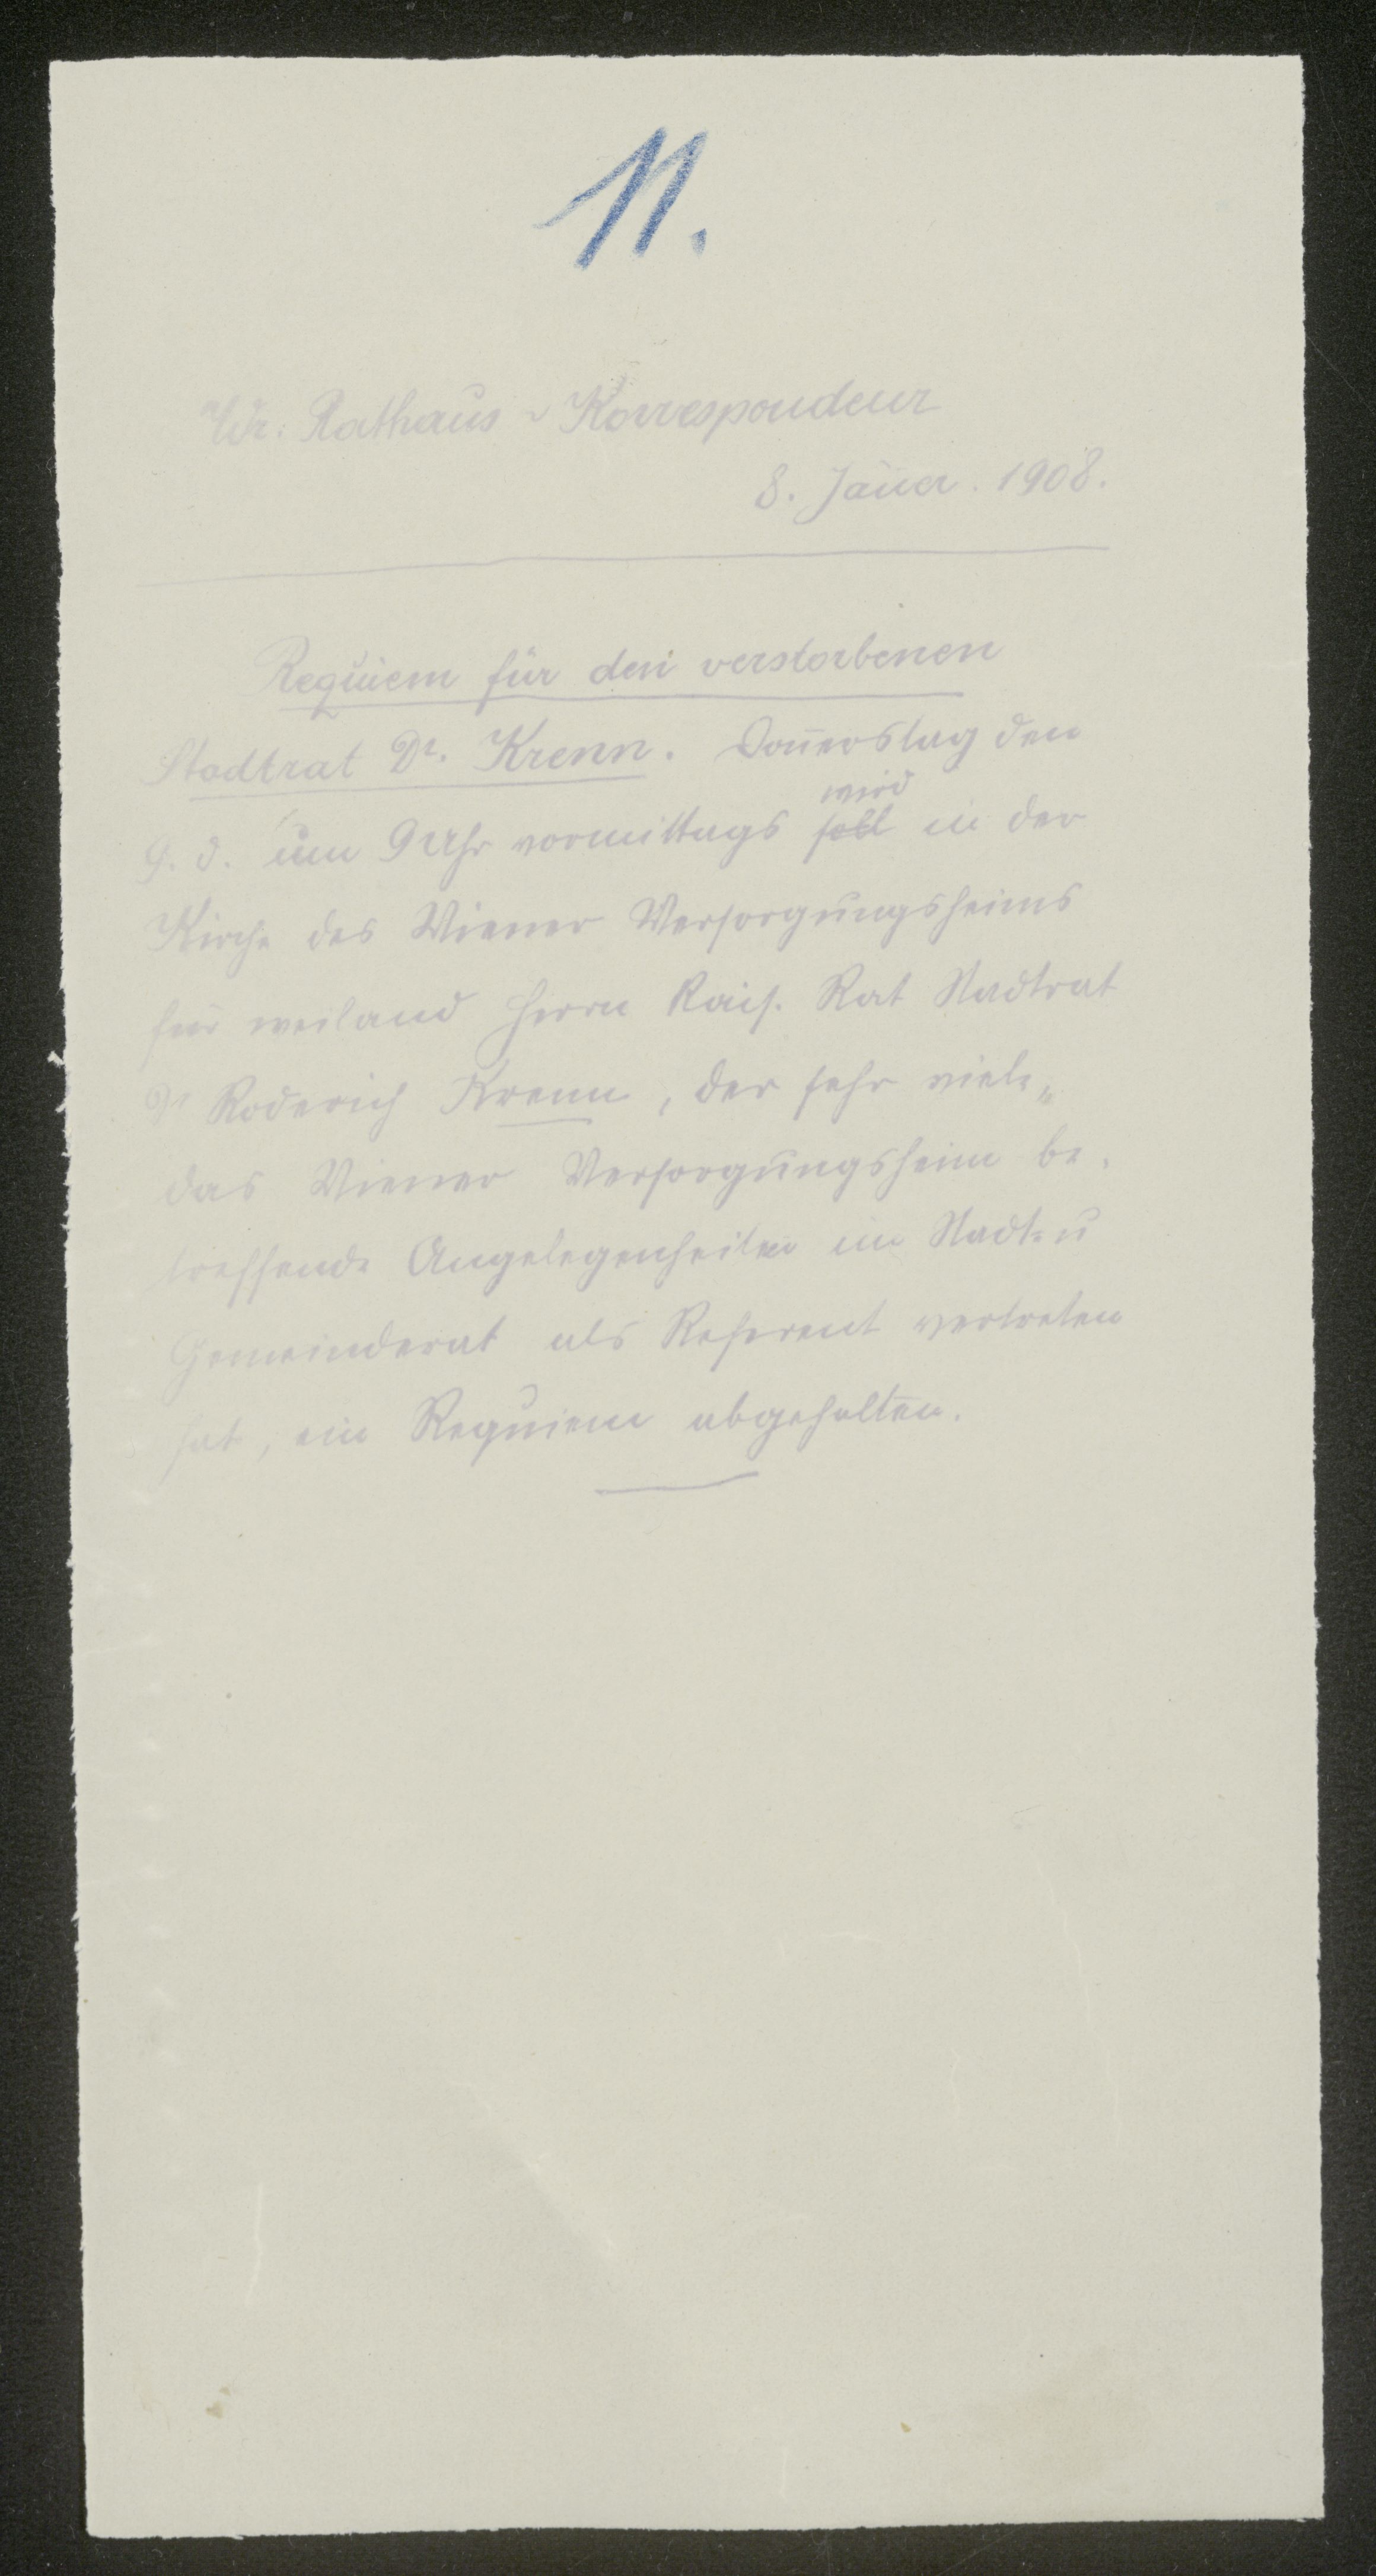 11.
Wr. Rathaus-Korrespondenz
8. Jäner. 1908.
Requiem für den verstorbenen
Stadtrat Dr. Krenn. Donnerstag den
9. d. um 9 Uhr vormittags soll wird in der
Kirche des Wiener Versorgungsheims
für weiland Herrn Kais. Rat Stadtrat
Dr Roderich Krenn, der sehr viele,
das Wiener Versorgungsheim be-
treffende Angelegenheiten im Stadt- u
Gemeinderat als Referent vertreten
hat, ein Requiem abgehalten.